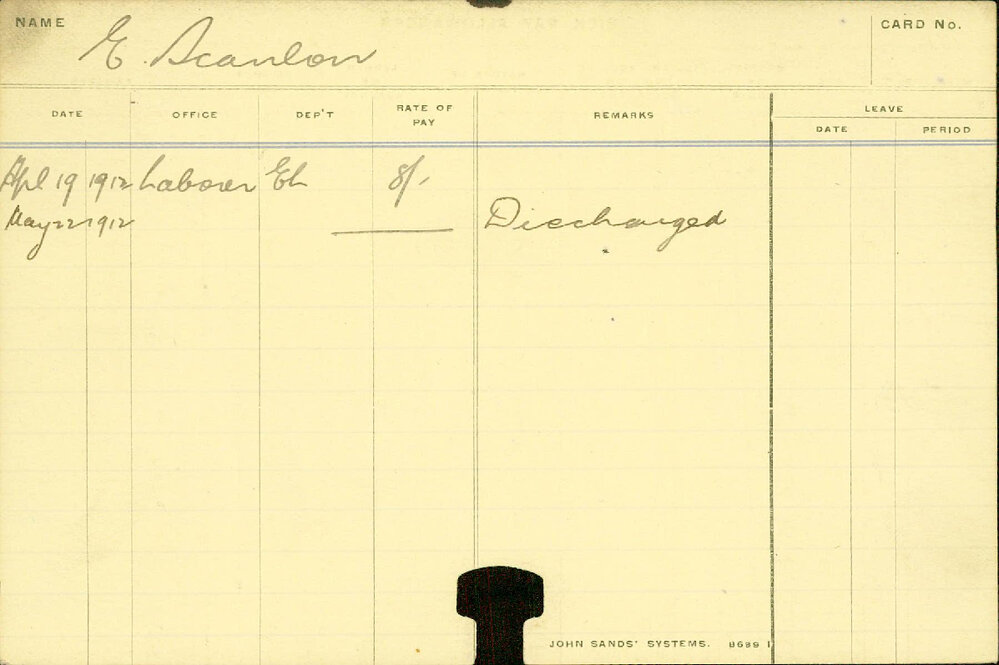 NAME E. Scanlon CARD No.
DATE OFFICE DEP'T RATE OF PAY REMARKS LEAVE
DATE PERIOD
Apl 19 1912 Laborer EL 8/-
May 22 1912 Discharged
JOHN SANDS' SYSTEMS. B699 1